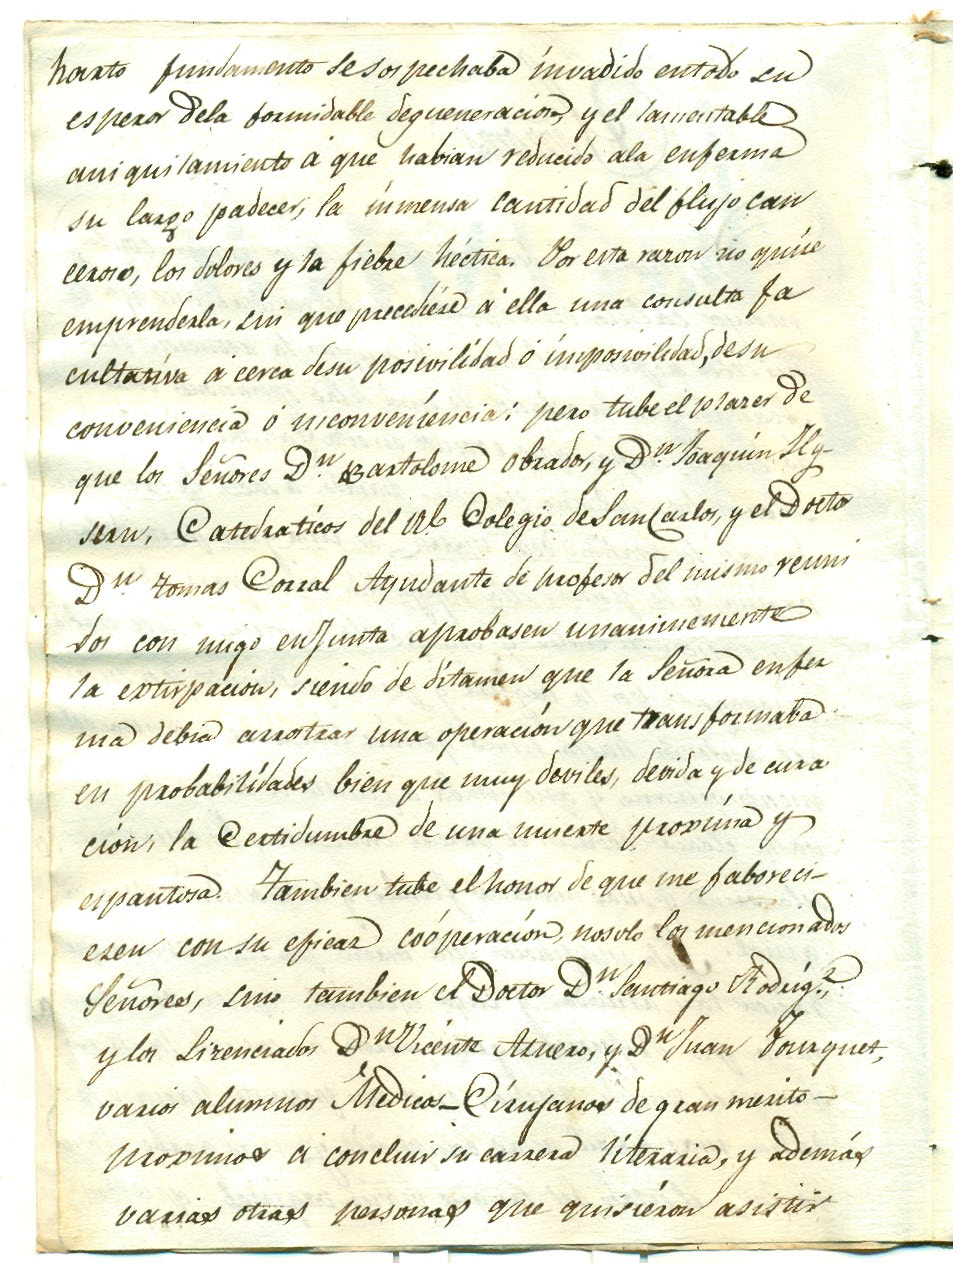 harto fundamento se sospechaba invadido entodo su
espezor dela formidable degueneracion, y el lamentable
aniquilamiento á que habian reducido ala enferma
su largo padecer, la inmensa cantidad del flujo can
ceroso, los dolores y la fiebre héctica. Por esta razon no quise
emprenderla, sin que precediese á ella una consulta fa
cultativa á cerca desu posivilidad ó imposivilidad, desu
conveniencia ó inconveniencia: pero tube el plazer de
que los Señores Dn. Bartolome Obrador, y Dn. Joaquin Hy-
sern, Catedraticos del Rl. Colegio de San Carlos, y el Docto
Dn. Tomas Corral Ayudante de profesor del mismo reuni
dos con migo en Junta aprobasen unanimemente
la extirpacion, siendo de ditamen que la Señora enfer
ma debia arrostrar una operación que transformaba
en probabilidades bien que muy deviles, de vida y de cura
ción, la Certidumbre de una muerte proxima y
espantosa. Tambien tube el honor de que me faboreci-
esen con su eficaz coóperación, nosolo los mencionados
Señores, sino tambien el Doctor Dn. Santiago Rodrigz.,
y los Lizenciados Dn. Vicente Asuero, y Dn. Juan Fourquet,
varios alumnos Medicos-Cirujanos de gran merito-
proximos á concluir su carrera literaria, y además
varias otras personas que quisieron asistir